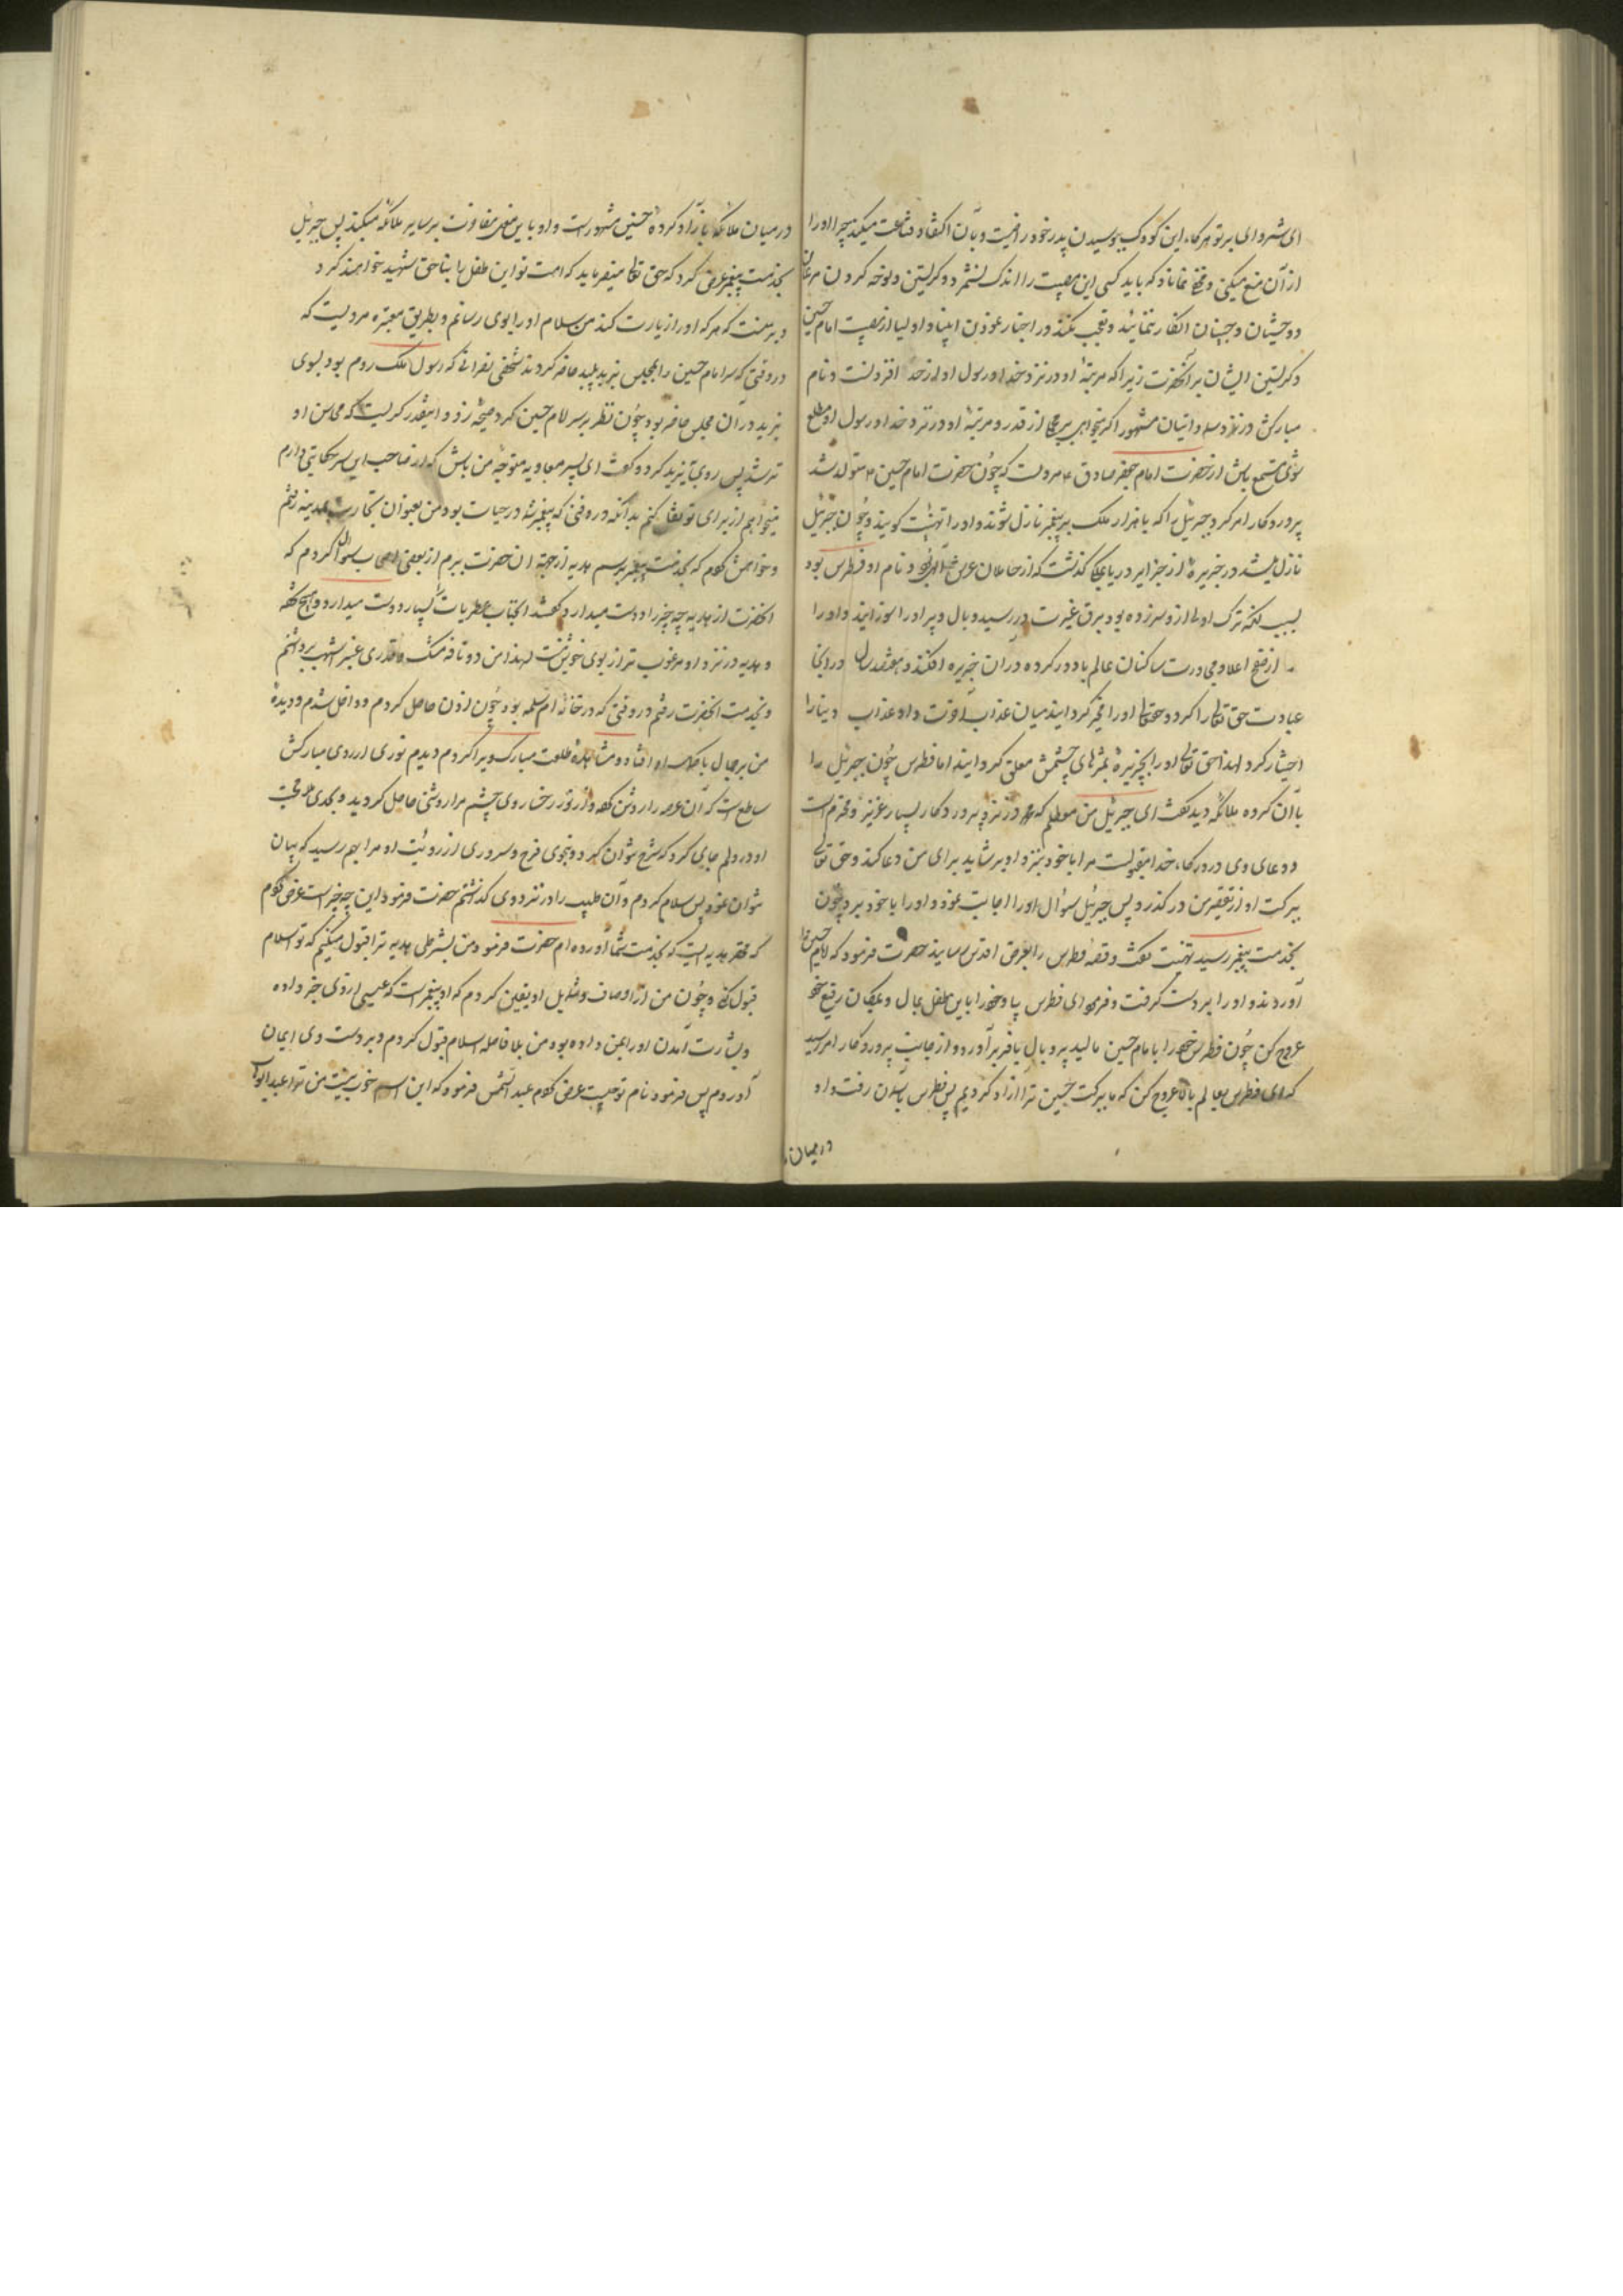 ای شهر وای بر تو هر گاه این کودک ببوسیدن پدر خود راضیست و بآن اکتفا و قناعت میکند چرا او را
از آن منع میکنی و مخفی نماناد که باید کسی این مصیبت را اندک نشمرد و گریستن و نوحه کردن مرغان
و وحشیان و جنیان انکار ننمائید و تعجب نکند در اختیار نمودن انبیا و اولیا از مصیبت امام حسین
و گریستن ایشان بر آنحضرت زیرا که مرتبهٔ او در نزد خدا و رسول او از حد افزونست و نام
مبارکش در نزد ملائکه و انبیا مشهور اگر میخواهی بر مجملی از قدر و مرتبهٔ او در نزد خدا و رسول او مطلع
شوی مستمع باش از حضرت امام جعفر صادق ع مرویست که چون حضرت امام حسین ع متولد شد
پروردگار امر کرد جبرئیل را که با هزار ملک بر پیغمبر نازل شوند و او را تهنیت گویند و چون جبرئیل
نازل میشد در جزیرهٔ از جزایر دریا بملکی گذشت که از حاملان عرش الهی و نام او فطرس بود
بسبب آنکه ترک اولی از او سر زده بود برق غیرت در رسید و بال و پر او را سوزانید و او را
از صقع اعلا و مجاورت ساکنان عالم بالا دور کرده در آن جزیره افکند و هفتصد سال در آنجا
عبادت حق تعالی را کرد و حقتعالی او را مخیر گردانید میان عذاب آخرت و او عذاب دنیا را
اختیار کرد لهذا حق تعالی او را بجزیره بمژهای چشمش معلق گردانید اما فطرس چون جبرئیل را
با آن گروه ملائکه دید گفت ای جبرئیل من مطلعم که محمد در نزد پروردگار بسیار عزیز و محترم است
و دعای وی در درگاه خدا مقبولست مرا با خود بنزد او بر شاید برای من دعا کند و حق تعالی
ببرکت او از تقصیر من در گذرد پس جبرئیل سؤال او را اجابت نمود و او را با خود برد چون
بخدمت پیغمبر رسید تهنیت گفت و قصه فطرس را بعرض اقدس رسانید حضرت فرمود که امام حسین را
آوردند و او را بر دست گرفت و فرمود ای فطرس بیا و خود را باین طفل بمال و بمکان رفیع خود
عروج کن چون فطرس خود را بامام حسین مالید پر و بال یافته بر آورد و از جانب پروردگار امر رسید
که ای فطرس بعالم بالا عروج کن که ما ببرکت حسین ترا آزاد کردیم پس فطرس بآسمان رفت و او
در میان
در میان ملائکه بآزاد کردهٔ حسین مشهور است و او باین معنی مفاوت بر سایر ملائکه میکند پس جبرئیل
بخدمت پیغمبر عرض کرد که حق تعالی میفرماید که امت تو این طفل را بناحق شهید خواهند کرد
و بر منست که هر که او را زیارت کند من سلام او را بوی رسانم و بطریق معتبره مرویست که
در وقتی که سر امام حسین را بمجلس یزید پلید حاضر کردند شخصی نصرانی که رسول ملک روم بود بسوی
یزید در آن مجلس حاضر بود چون نظر بر سر امام حسین کرد صیحه زد و اینقدر گریست که محاسن او
تر شد پس روی بیزید کرد و گفت ای پسر معاویه متوجه من باش که از صاحب این سر حکایتی دارم
میخواهم از برای تو نقل کنم بدانکه در وقتی که پیغمبر شما در حیات بود من بعنوان تجارت بمدینه رفتم
و خواهش کردم که بخدمت پیغمبر برسم هدیه از جهة ان حضرت ببرم از بعضی اصحاب سؤال کردم که
آنحضرت از هدیه چه چیز را دوست میدارد گفتند آنجناب عطریات را بسیار دوست میدارد و هیچ تحفه
و هدیه در نزد او مرغوب تر از بوی خوش نیست لهذا من دو نافه مشک و قدری عنبر اشهب برداشتم
و بخدمت آنحضرت رفتم در وقتی که در خانهٔ ام سلمه بود چون اذن حاصل کردم و داخل شدم و دیدهٔ
من بر جمال با کمال او افتاد و مشاهدهٔ طلعت مبارک ویرا کردم دیدم نوری از روی مبارکش
ساطع است که آن عرصه را روشن کرده و از نور رخسار وی چشم مرا روشنی حاصل گردید و بحدی محبت
او در دلم جای کرد که شرح نتوان کرد و بنحوی فرح و سروری از رؤیت او مرا بهم رسید که بیان
نتوان نمود پس سلام کردم و آن طیب را در نزد وی گذاشتم حضرت فرمود این چه چیز است عرض کردم
که محقر هدیه ایست که بخدمت شما آورده ام حضرت فرمود من بشرطی هدیه ترا قبول میکنم که تو اسلام
قبول کنی و چون من از اوصاف و شمایل او یقین کردم که او پیغمبر است که عیسی از وی خبر داده
و بشارت آمدن او را بمن داده بود من بلا فاصله اسلام قبول کردم و بر دست وی ایمان
آوردم پس فرمود نام تو چیست عرض کردم عبد الشمس فرمود که این اسم خوب نیست من ترا عبد الوهاب